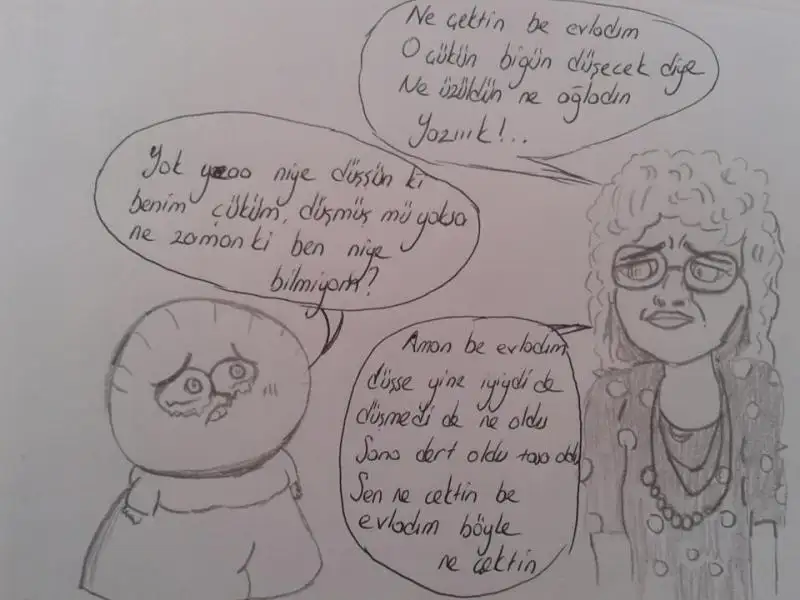 Ne çektin be evladım
O çükün bigün düşecek diye
Ne üzüldün ne ağladın
Yazıııık!..
Yok yaoo niye düşsün ki
benim çüküm, düşmüş mü yoksa
ne zaman ki ben niye
bilmiyom?
Aman be evladım
düşse yine iyiydi de
düşmedi de ne oldu
Sana dert oldu tasa oldu
Sen ne çektin be
evladım böyle
ne çektin